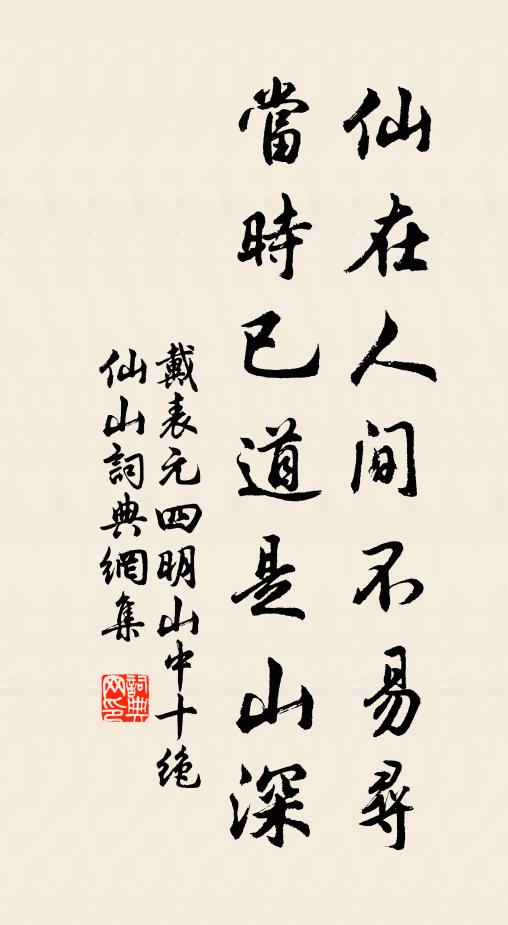 仙在人間不易尋
當時已道是山深
戴表元四明山中十絶
仙山詞典網集
詞典
网印